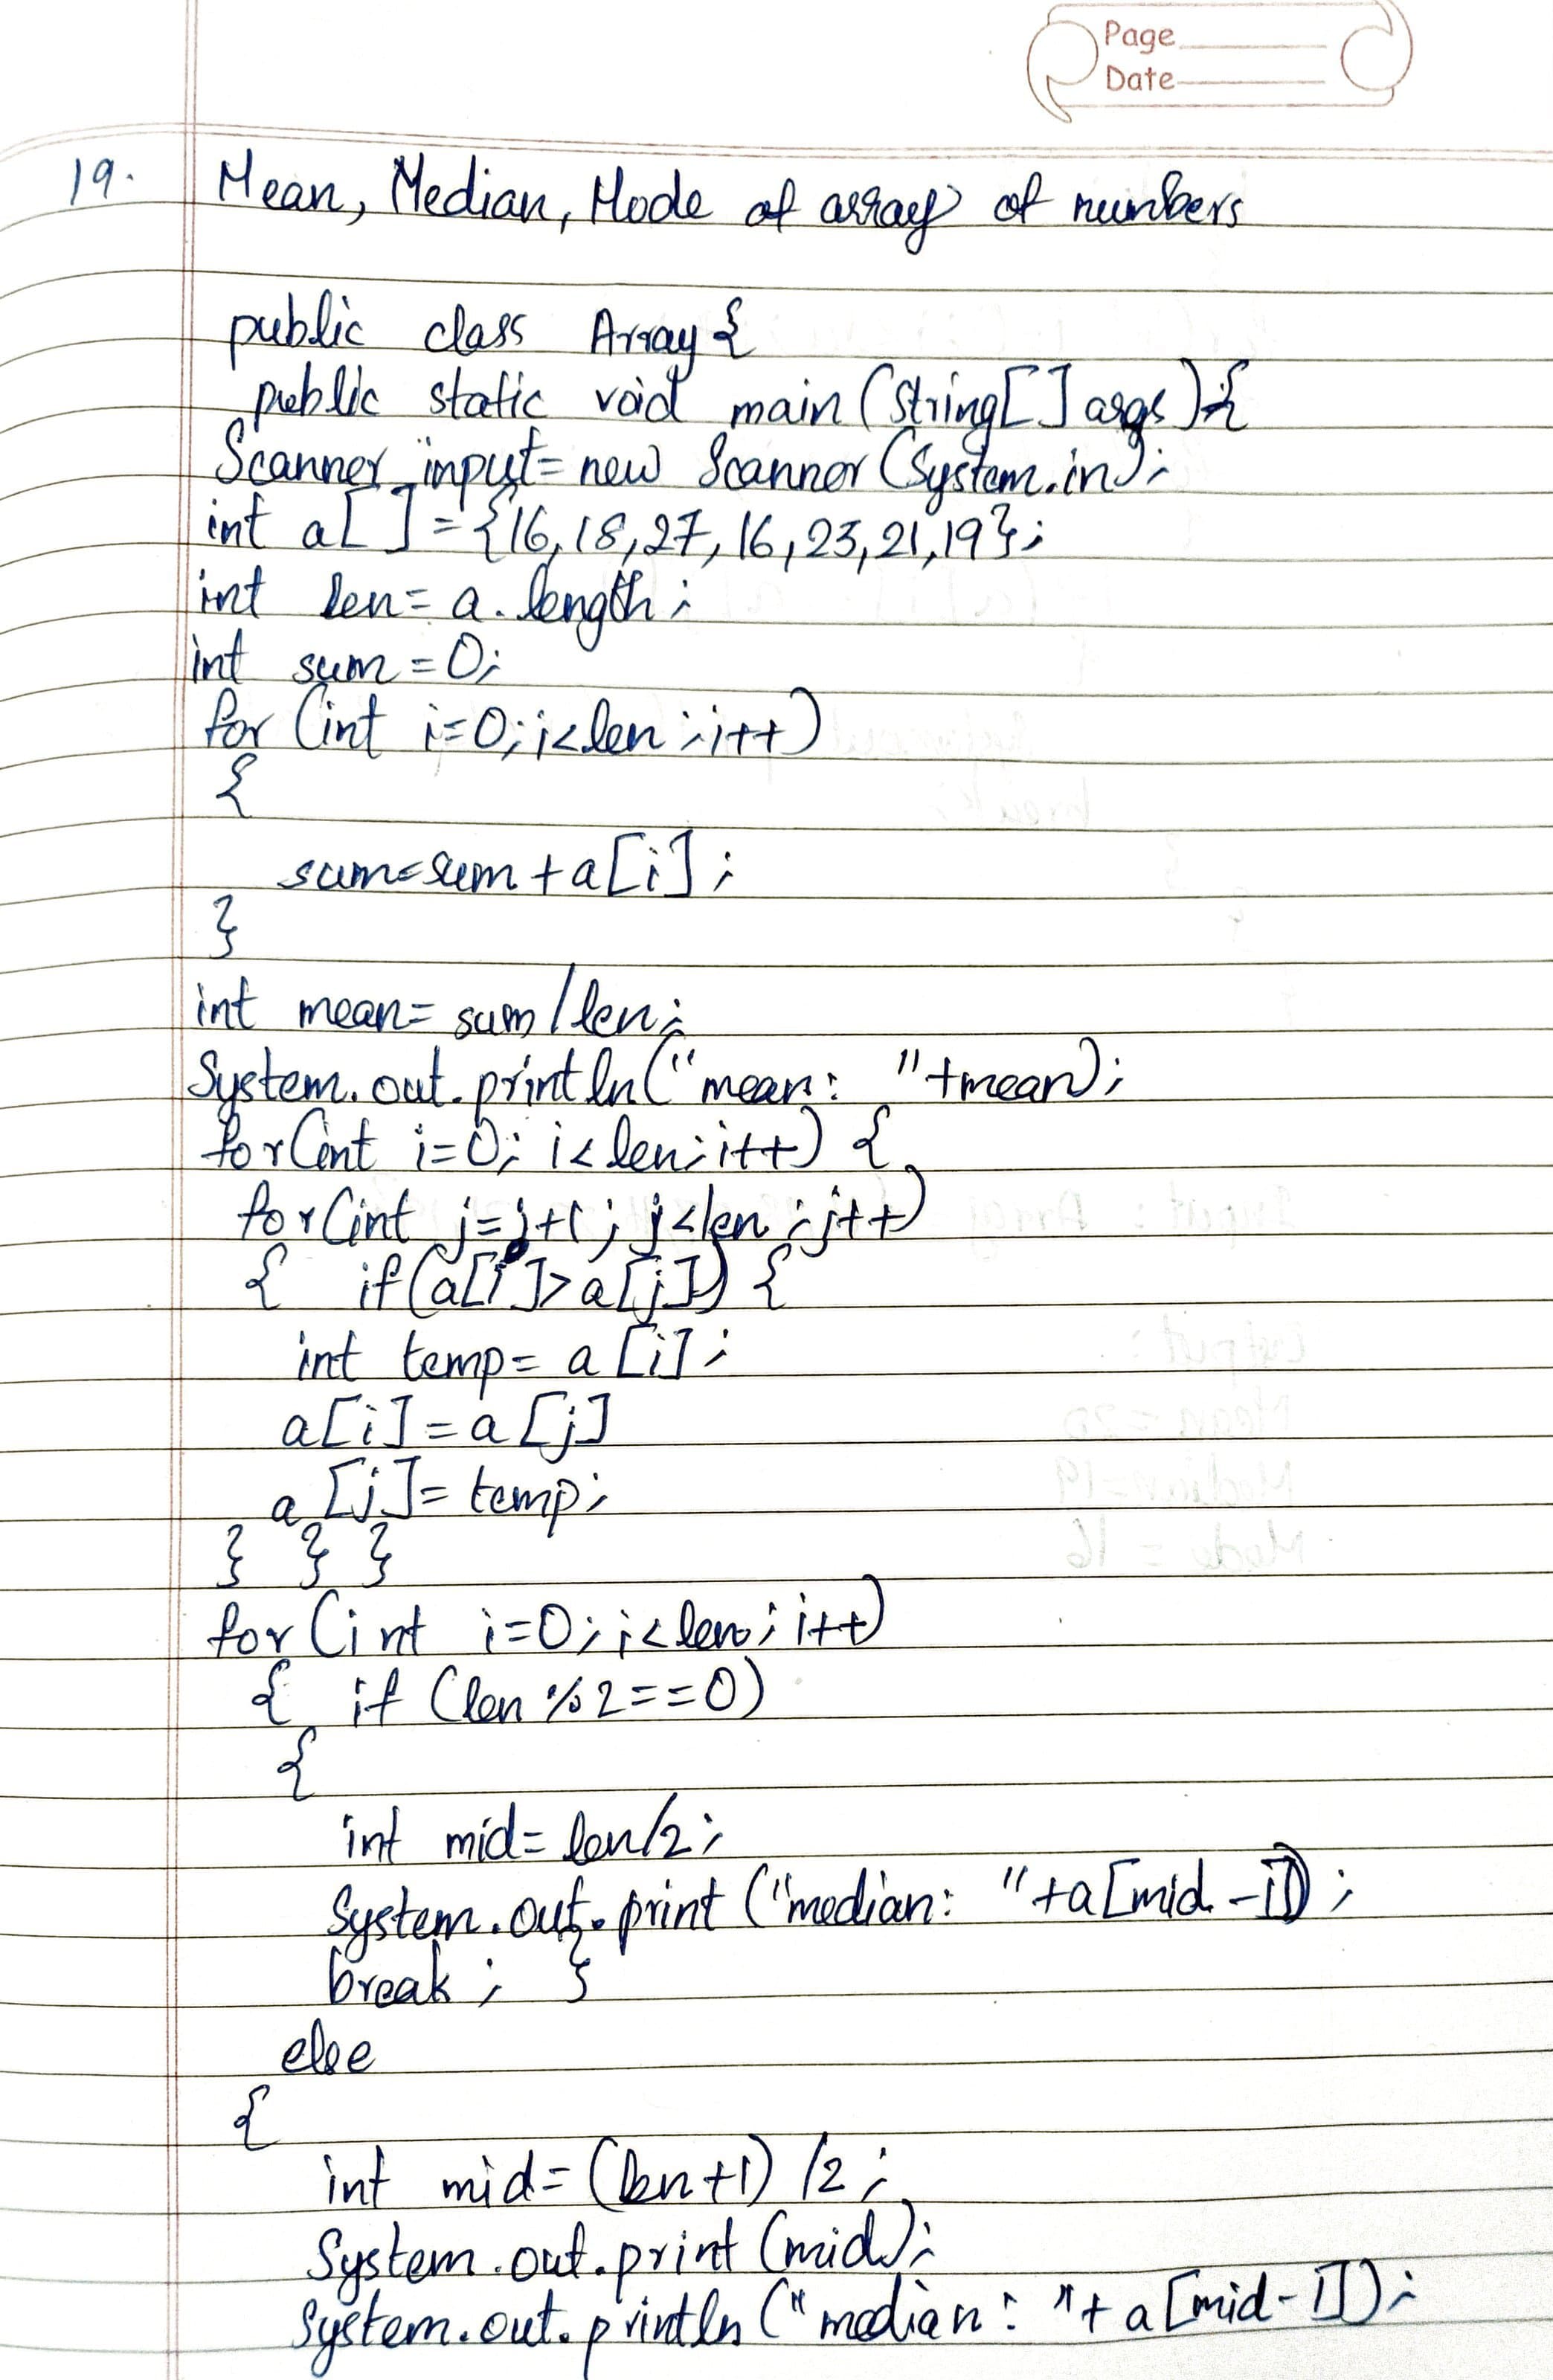 Page
Date
19. Mean, Median, Mode of array of numbers
public class Array {
public static void main (String[] args) {
Scanner input = new Scanner (System.in);
int a[ ] = {16, 18, 27, 16, 23, 21, 19};
int len = a.length;
int sum = 0;
for (int i=0; i<len; i++)
{
sum = sum + a[i];
}
int mean = sum / len;
System.out.println("mean: "+mean);
for (int i=0; i<len; i++) {
for (int j=j+1; j<len; j++)
{ if (a[i] > a[j]) {
int temp = a[i];
a[i] = a[j]
a[j] = temp;
} } }
for (int i=0; i<len; i++)
{ if (len % 2 == 0)
{
int mid = len/2;
System.out.print ("median: "+a[mid-1]);
break; }
else
{
int mid = (len+1) /2;
System.out.print (mid);
System.out.println ("median: "+ a[mid-1]);